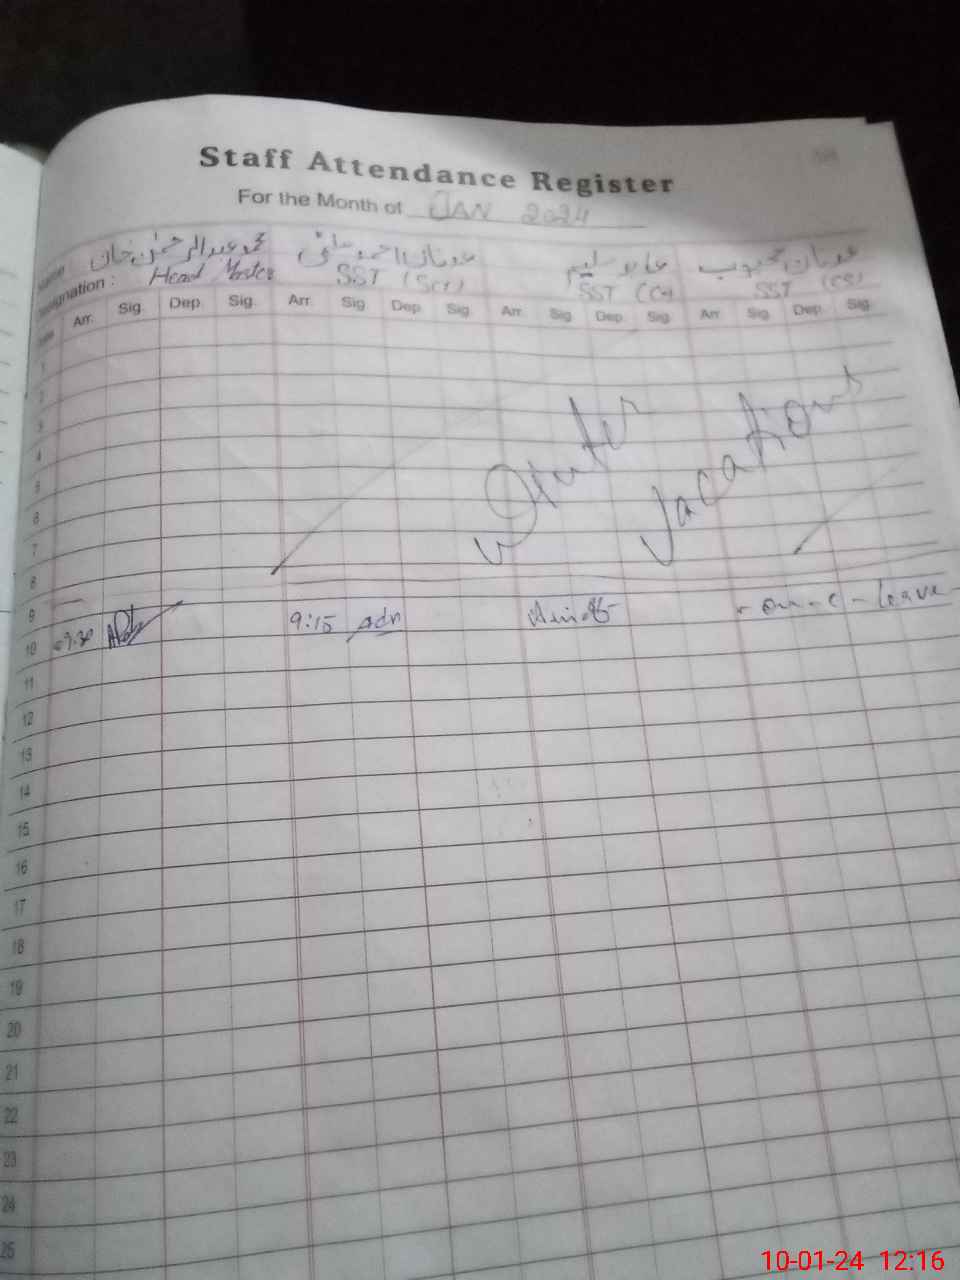 Staff Attendance Register
For the Month of JAN 2024
Name محمد عبدالرحمٰن خان عدنان احمد عابد سلیم عدنان محبوب
Designation : Head Master SST (Sci) SST SST (CS)
Date Arr. Sig. Dep. Sig. Arr. Sig. Dep. Sig. Arr. Sig. Dep. Sig. Arr. Sig. Dep. Sig.
1
2
3
4
5
6
7
8
Winter Vacations
9
10 09:30 9:15 Adn on - c - leave
11
12
13
14
15
16
17
18
19
20
21
22
23
24
25
10-01-24 12:16